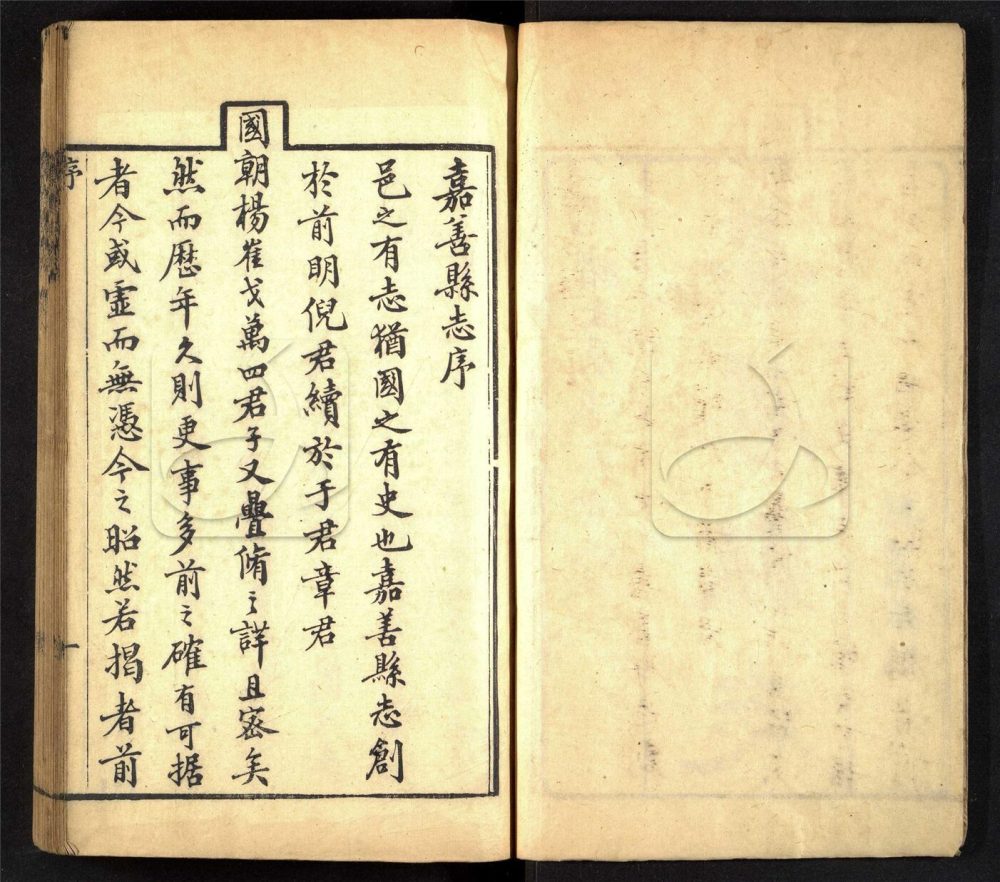 嘉善縣志序
邑之有志猶國之有史也嘉善縣志創
於前明倪君續於于君章君
國朝楊崔戈萬四君子又疊脩之詳且密矣
然而歷年久則更事多前之確有可据
者今或虛而無憑今之昭然若揭者前
序
一